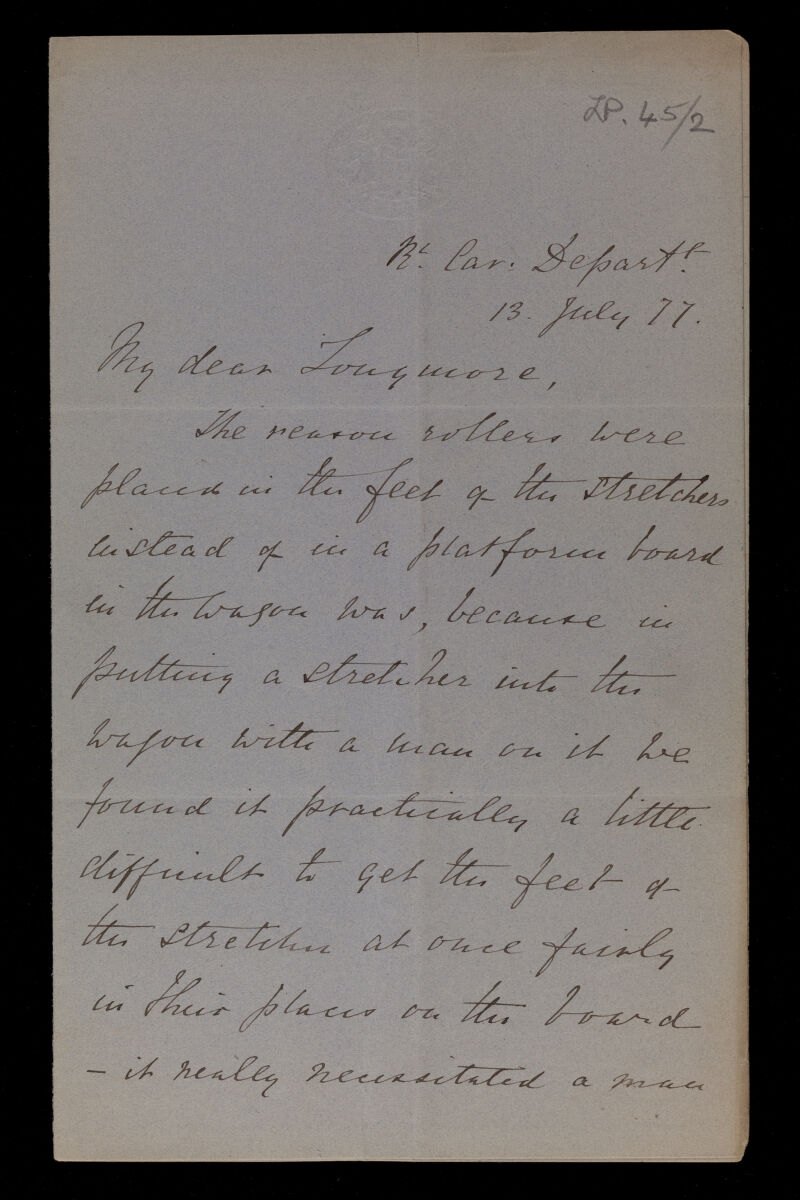 LP. 45/2
Rl. Car: Departt.
13. July 77.
My dear Longmore,
The reason rollers were
placed in the feet of the stretchers
instead of in a platform board
in the wagon was, because in
putting a stretcher into the
wagon with a man on it we
found it practically a little
difficult to get the feet of
the stretcher at once fairly
in their places on the board
- it really necessitated a man